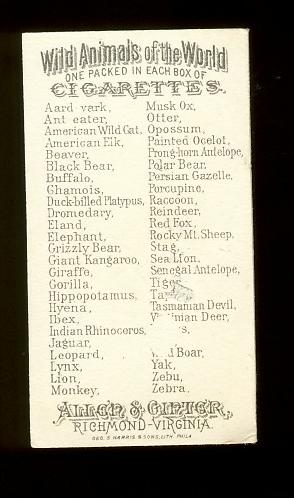 Wild Animals of the World
ONE PACKED IN EACH BOX OF
CIGARETTES.
Aard-vark,
Ant eater,
American Wild Cat,
American Elk,
Beaver,
Black Bear,
Buffalo,
Chamois,
Duck-billed Platypus,
Dromedary,
Eland,
Elephant,
Grizzly Bear,
Giant Kangaroo,
Giraffe,
Gorilla,
Hippopotamus,
Hyena,
Ibex,
Indian Rhinoceros,
Jaguar,
Leopard,
Lynx,
Lion,
Monkey,
Musk Ox,
Otter,
Opossum,
Painted Ocelot,
Prong-horn Antelope,
Polar Bear,
Persian Gazelle,
Porcupine,
Raccoon,
Reindeer,
Red Fox,
Rocky Mt. Sheep,
Stag,
Sea Lion,
Senegal Antelope,
Tiger,
Tasmanian Devil,
Deer,
Boar,
Yak,
Zebu,
Zebra.
ALLEN & GINTER,
RICHMOND-VIRGINIA.
GEO. S. HARRIS & SONS, LITH. PHILA.